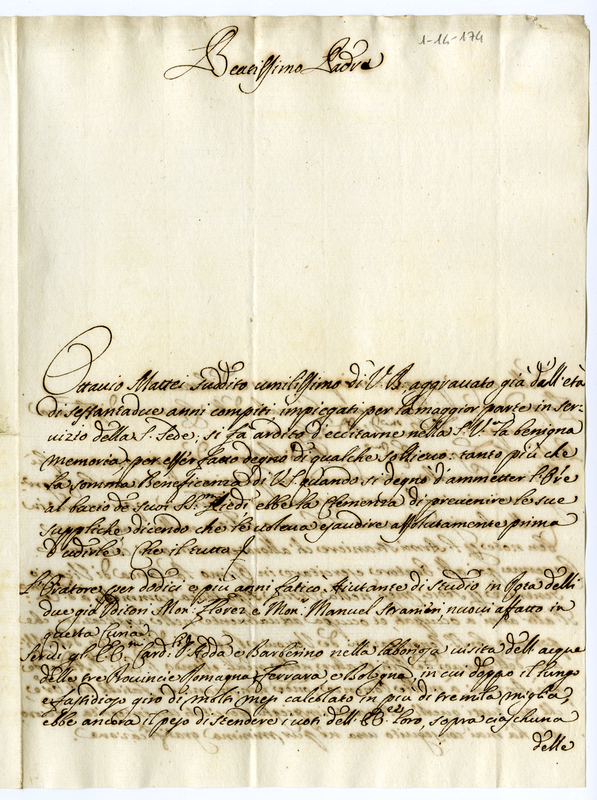 1-14-174
Beatissimo Padre
Ottavio Mattei suddito umilissimo di V. B. aggravato già dall'età
di sessantadue anni compiti impiegati per la maggior parte in ser-
vizio della S. Sede, si fa ardito d'eccitarne nella S. V. la benigna
memoria, per esser fatto degno di qualche sollievo: tanto più che
la somma Beneficenza di V. S. quando si degnò d'ammetter l'Ore
al bacio de' suoi SS.mi Piedi ebbe la Clemenza di prevenire le sue
suppliche dicendo che le voleva esaudire assolutamente prima
d'udirle. Che il tutto
L'Oratore per dodici e più anni faticò, Aiutante di studio in Rota delli
due già Uditori Mon: Florez, e Mon: Manuel stranieri, nuovi affatto in
questa Curia.
Servì gl' EE.mi Card.li d'Adda e Barberino nella laboriosa visita dell' acque
delle tre Provincie Romagna Ferrara e Bologna, in cui doppo il lungo
e fastidioso giro di molti mesi calcolato in più di tremila miglia,
ebbe ancora il peso di stendere i voti dell' EE.ze loro, sopra ciaschuna
delle